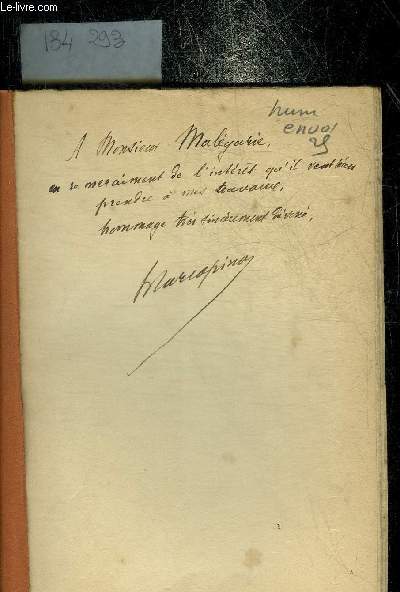 Le-livre.com
184 293
hum
envoi
25
A Monsieur Malégarie,
en remerciement de l'intérêt qu'il veut bien
prendre à mes travaux,
hommage très sincèrement dévoué,